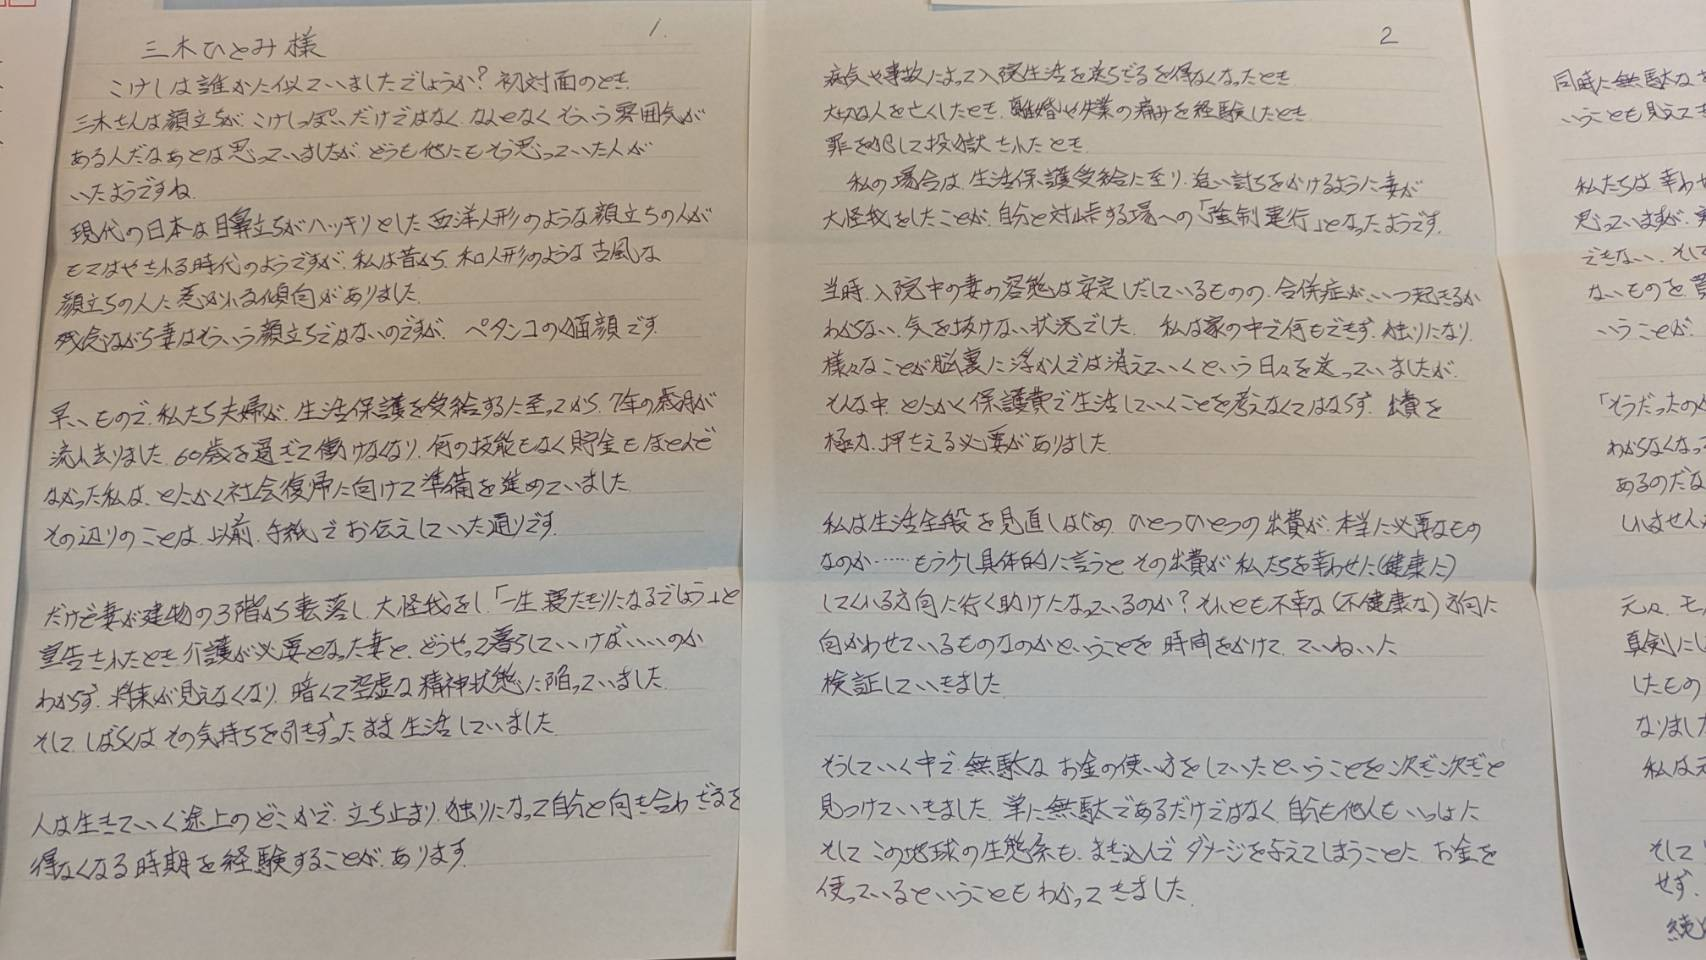 1.
三木ひとみ様
こけしは誰かに似ていましたでしょうか? 初対面のとき
三木さんは顔立ちが、こけしっぽいだけではなく、なんとなくそういう雰囲気が
ある人だなあとは思っていましたが、どうも他にもそう思っていた人が
いたようですね
現代の日本は目鼻立ちがハッキリとした西洋人形のような顔立ちの人が
もてはやされる時代のようですが、私は昔から、和人形のような古風な
顔立ちの人に惹かれる傾向がありました。
残念ながら妻はそういう顔立ちではないのですが、ペタンコの猫顔です。
早いもので、私たち夫婦が、生活保護を受給するに至ってから、7年の歳月が
流れ去りました。60歳を過ぎて働けなくなり、何の技能もなく貯金もほとんど
なかった私は、とにかく社会復帰に向けて準備を進めていました。
その辺りのことは、以前、手紙でお伝えしていた通りです。
だけど妻が建物の3階から転落し、大怪我をし、「一生寝たきりになるでしょう」と
宣告されたとき、介護が必要となった妻と、どうやって暮らしていけばいいのか
わからず、将来が見えなくなり、暗くて空虚な精神状態に陥っていました。
そして、しばらくはその気持ちを引きずったまま生活していました。
人は生きていく途上のどこかで、立ち止まり、独りになって自分と向き合わざるを
得なくなる時期を経験することが、あります。
2
病気や事故によって入院生活を送らざるを得なくなったとき
大切な人を亡くしたとき、離婚や失業の痛みを経験したとき
罪を犯して投獄されたとき
私の場合は、生活保護受給に至り、追い討ちをかけるように妻が
大怪我をしたことが、自分と対峙する場への「強制連行」となったようです。
当時、入院中の妻の容態は安定しだしているものの、合併症が、いつ起きるか
わからない、気を抜けない状況でした。私は家の中で何もできず、独りになり、
様々なことが脳裏に浮かんでは消えていくという日々を送っていましたが、
そんな中、とにかく保護費で生活していくことを考えなくてはならず、出費を
極力、押さえる必要がありました。
私は生活全般を見直しはじめ、ひとつひとつの出費が、本当に必要なもの
なのか……もう少し具体的に言うと、その出費が私たちを幸わせに(健康に)
してくれる方向に行く助けになっているのか? それとも不幸な(不健康な)方向に
向かわせているものなのかということを、時間をかけて、ていねいに
検証していきました。
そうしていく中で、無駄なお金の使い方をしていたということを次ぎ次ぎと
見つけていきました。単に無駄であるだけではなく、自分も他人もいっしょに
そしてこの地球の生態系も、まき込んでダメージを与えてしまうことに、お金を
使っているということもわかってきました。
同時に無駄な
いうことも見えて
私たちは幸わせ
思っていますが、
できない、そして
ないものを
いうことが、
「そうだったのか
わからなくなっ
あるのだな
しれません
元々、モ
真剣にし
したもの
なりました
私は元
そして
せず、
続